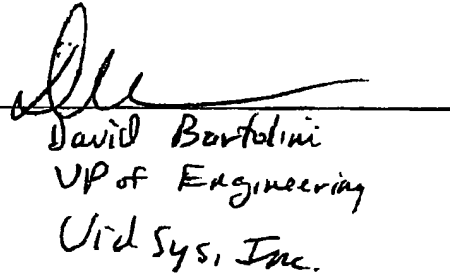 David Bartolini
VP of Engineering
VidSys, Inc.